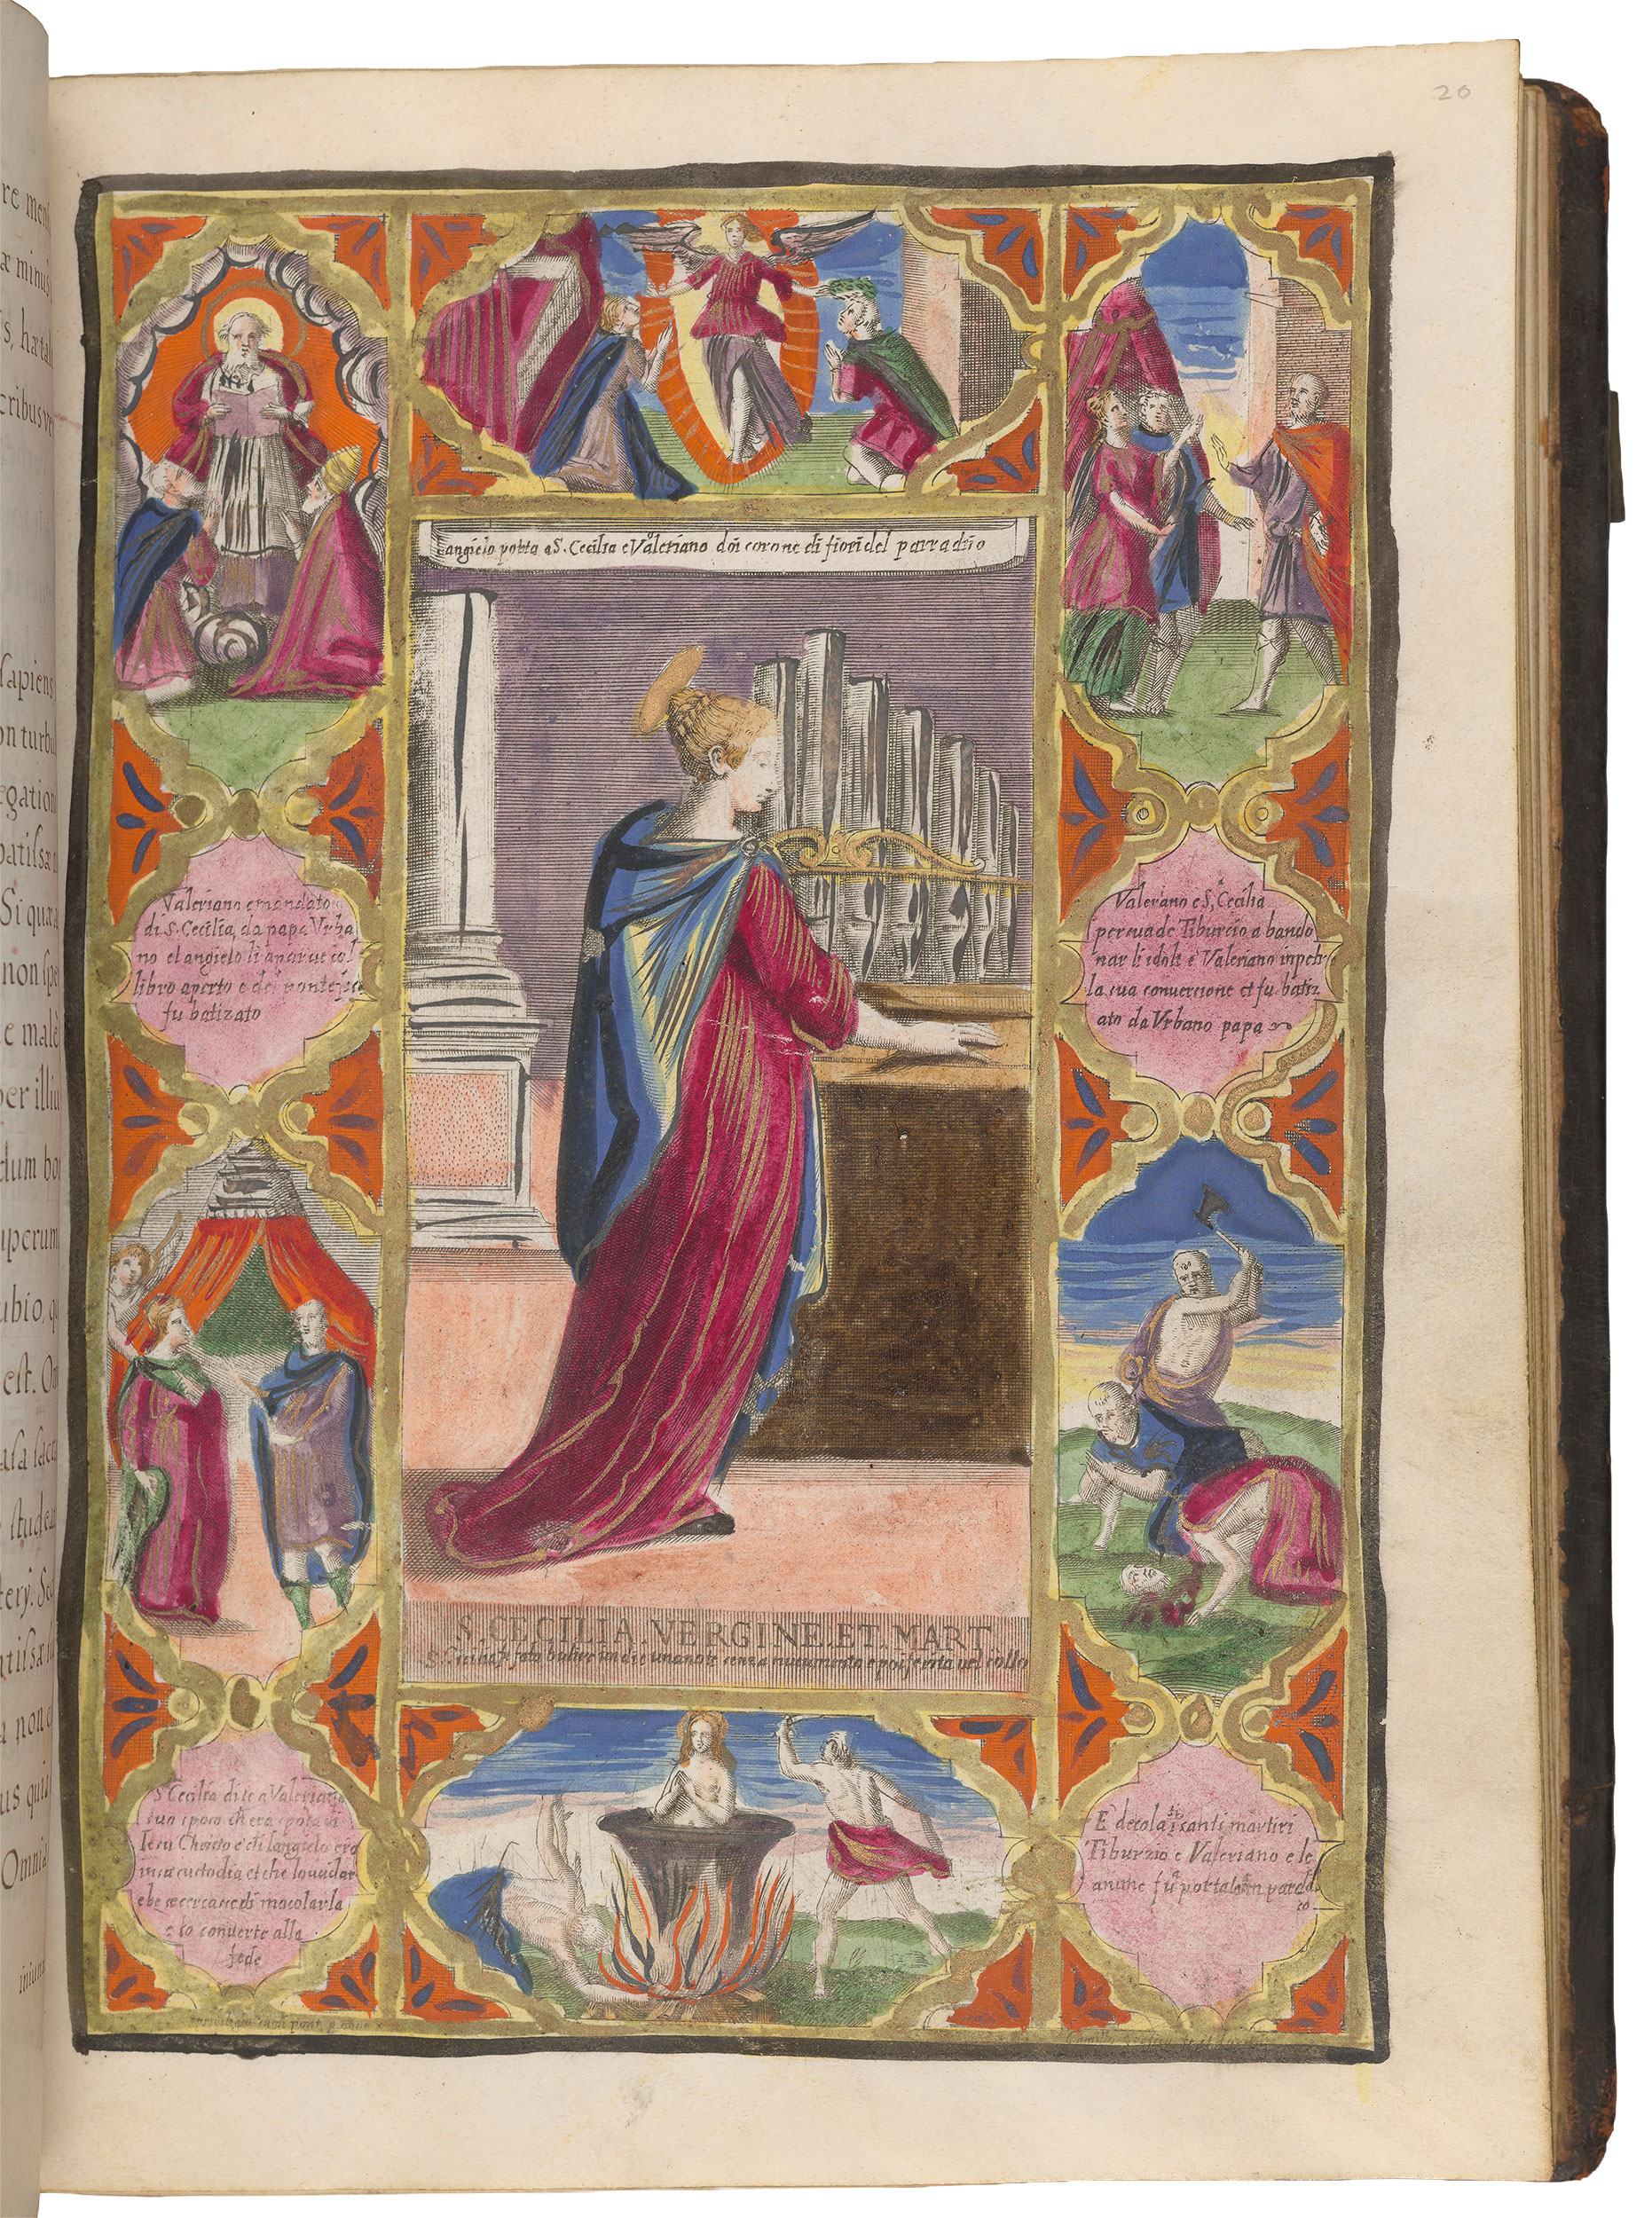 20
re men
æ minus
s, hæta
cribus ve
sapiens
on turbu
egation
batissæ a
Si quæ a
non spe
e malè
per illiu
dum bo
uperum
ubio, qu
est. O
asa sacr
studeu
terj. Se
atissæ su
a non
us quis
Omnia
iniuna
Langielo porta a S. Cecilia e Valeriano doi corone di fiori del parradiio
Valeriano e mandato
di S. Cecilia da papa Vrba
no el angielo li aparue col
libro aperto e del pontefice
fu batizato
Valeriano e S. Cecilia
persuade Tiburcio a bando
nar li idoli e Valeriano inpetr
la sua conuercione et fu batiz
ato da Vrbano papa
S. CECILIA. VERGINE. ET. MART
S. Cicilia fata bulire un di e una note senza nucumento e poi ferita nel collo
S Cecilia dice a Valeriano
suo sposo ch era sposa di
Iesu Christo e ch langielo era
in sa custodia et che lo
ebe di macolarla
e lo conuerte alla
fede
E decolati i santi martiri
Tiburzio e Valeriano e le
anime fu portate in parad
co